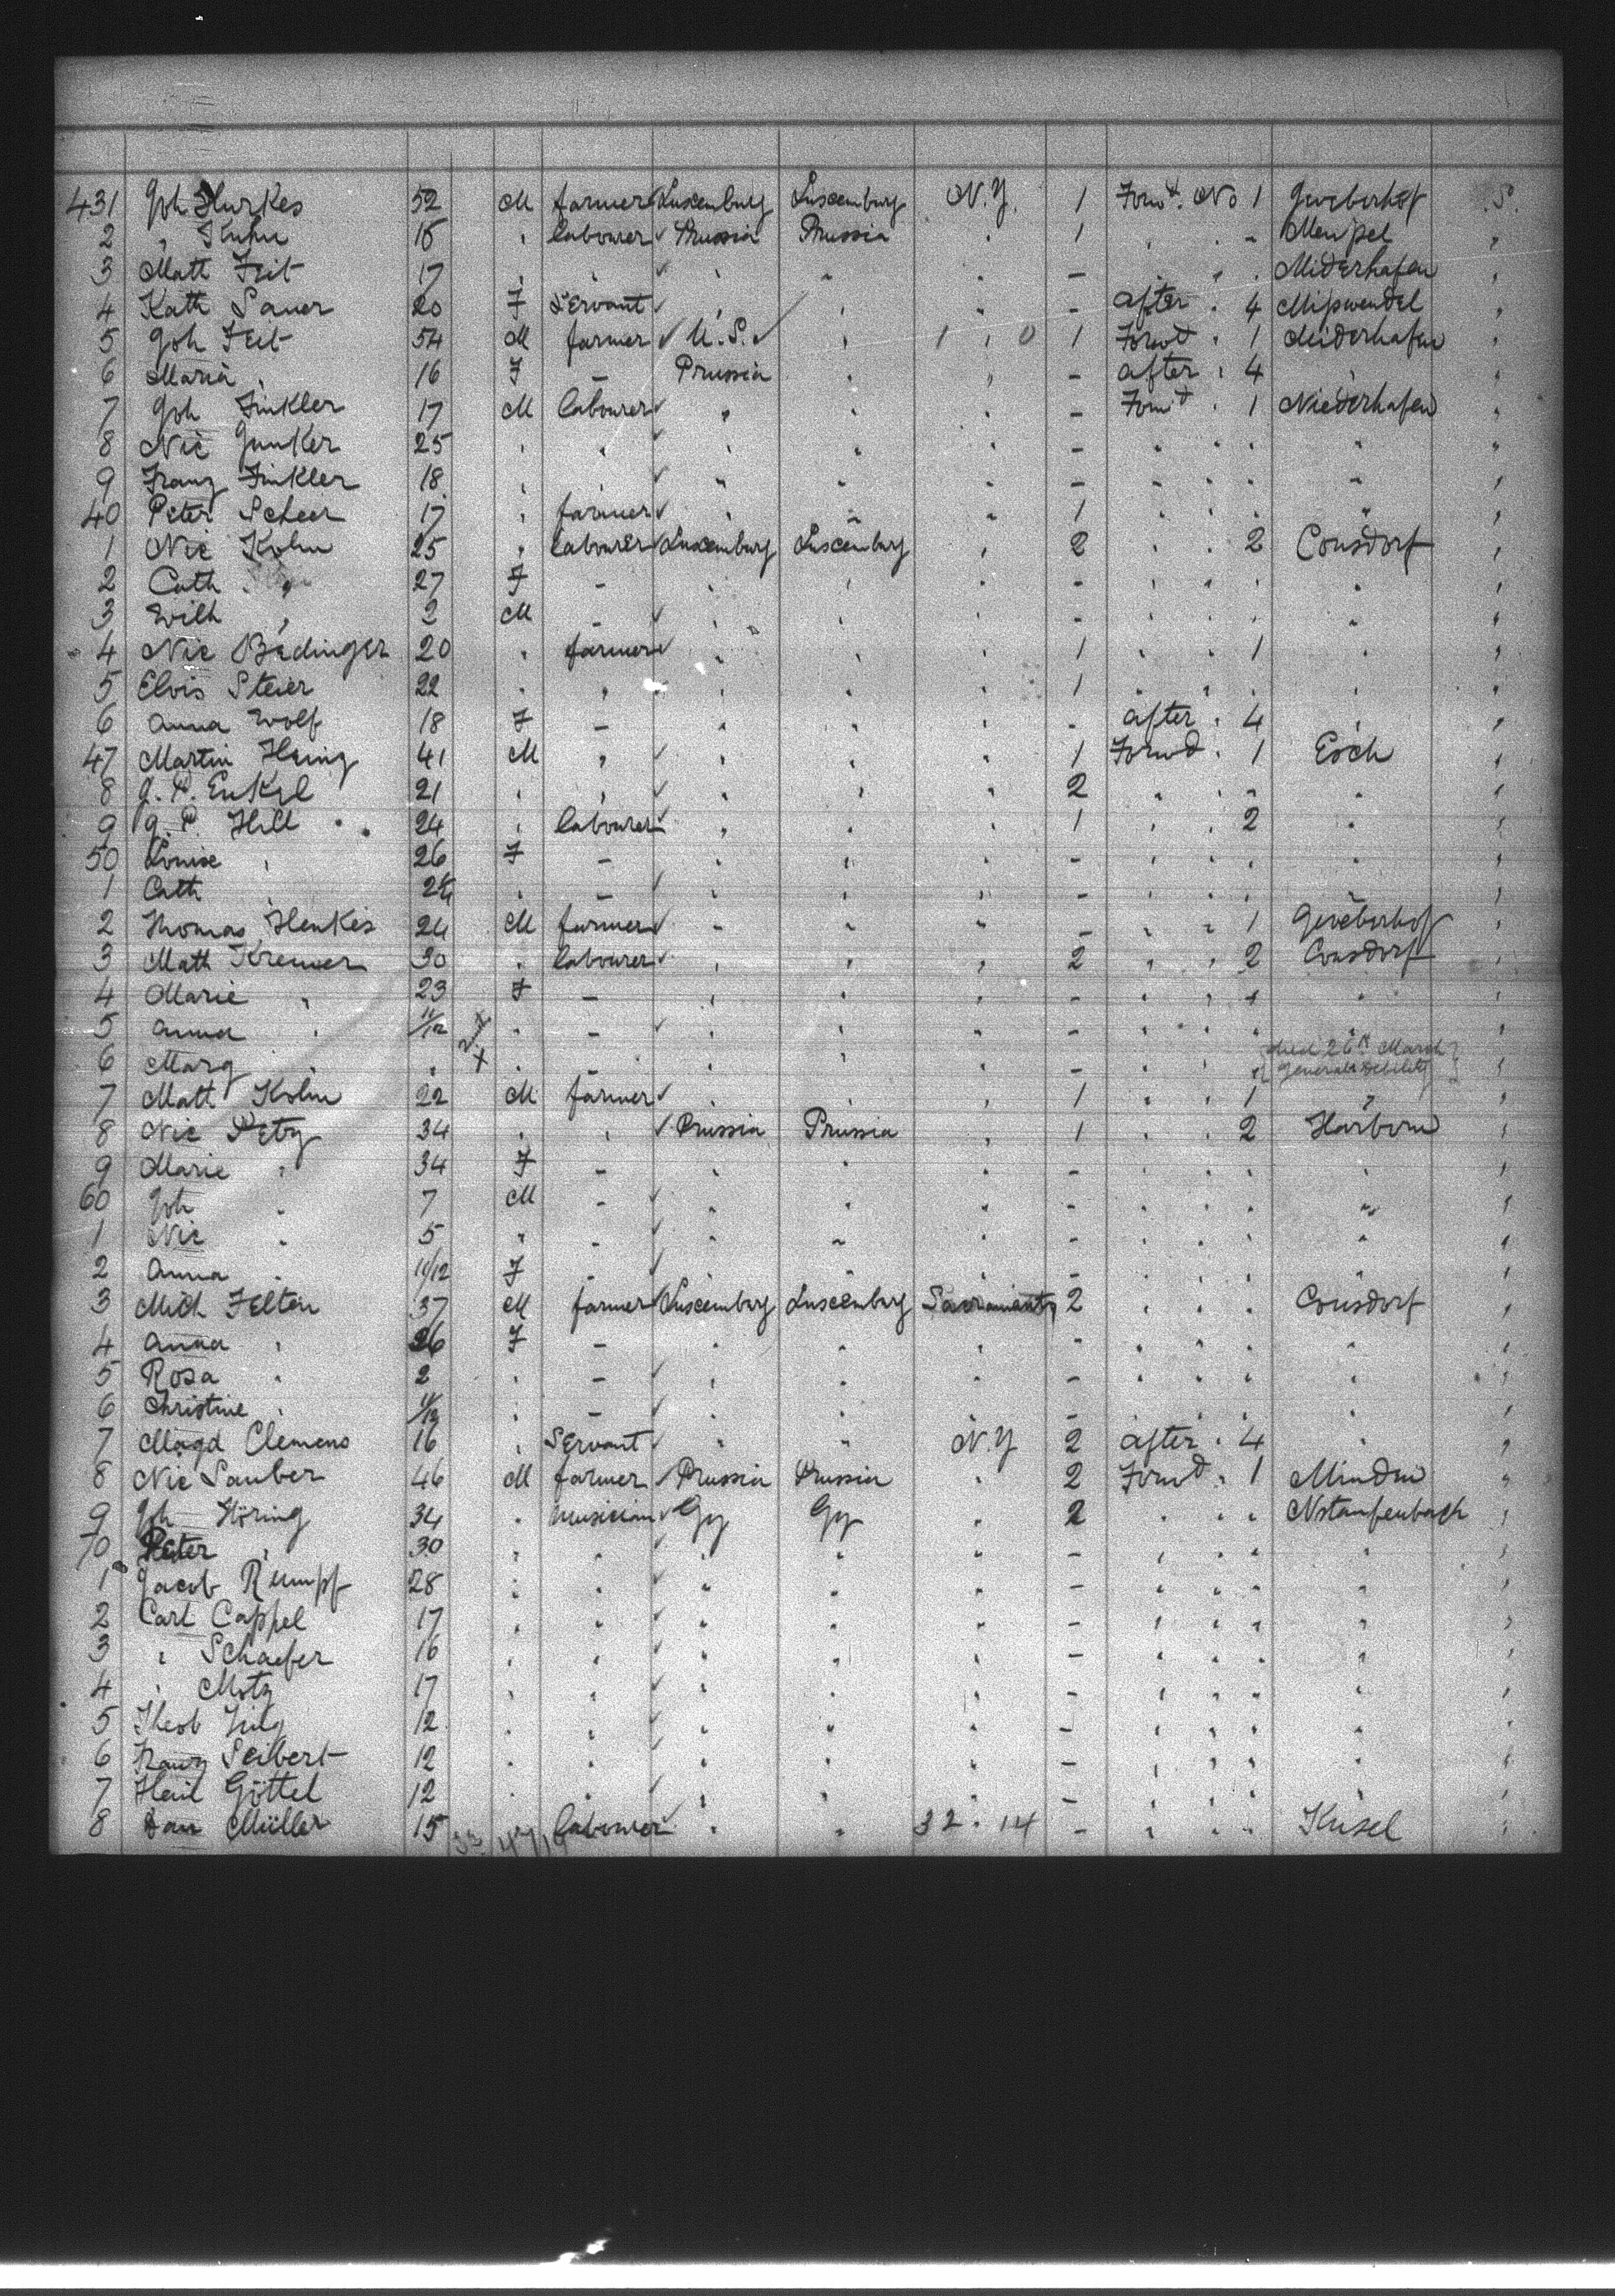 431 Joh Hurkes 52 M farmer Luxemburg Luxemburg N.Y. 1 Forwd. No 1 Geveberhof S.
2 " Kuhn 18 " labourer Prussia Prussia " 1 " " " Meupel "
3 Matt Feit 17 " " " " " - " " " Niderhafen "
4 Kath Sauer 20 F Servant " " " - after " 4 "
5 Joh Feit 54 M farmer U.S. " 1 " 0 1 Forwd " 1 Niderhafen "
6 Maria " 16 F - Prussia " " - after " 4 " "
7 Joh Finkler 17 M labourer " " " - Forwd " 1 Niederhafen "
8 Nic Junker 25 " " " " " - " " " " "
9 Franz Finkler 18 " " " " " - " " " " "
40 Peter Scheer 17 " farmer " " " 1 " " " " "
1 Nic Kohn 25 " labourer Luxemburg Luxemburg " 2 " " 2 Consdorf "
2 Cath " 27 F - " " " - " " " " "
3 Wilh " 2 M " " " - " " " " "
4 Nic Bedinger 20 " farmer " " " 1 " " 1 " "
5 Elvis Steier 22 " " " " " 1 " " " " "
6 Anna Wolf 18 F - " " " - after " 4 " "
47 Martin Heinz 41 M " " " " 1 Forwd " 1 Esch "
8 J. P. Enkel 21 " " " " " 2 " " " " "
9 J. P. Hill 24 " labourer " " " 1 " " 2 " "
50 Louise " 26 F - " " " - " " " " "
1 Cath " " - " " " - " " " " "
2 Thomas Henkes 24 M farmer " " " - " " 1 Geveberhof "
3 Math Kremer 30 " labourer " " " 2 " " 2 Consdorf "
4 Marie " 23 F - " " " - " " " " "
5 Anna " 11/12 " - " " " - " " " " "
6 Marg " " " - " " " - " " " died 26th March General debility "
7 Matt Kohn 22 M farmer " " " 1 " " 1 " "
8 Nic Petz 34 " " Prussia Prussia " 1 " " 2 Harborn "
9 Marie " 34 F - " " " - " " " " "
60 Joh " 7 M - " " " - " " " " "
1 Nic " 5 " - " " " - " " " " "
2 Anna " 11/12 F - " " " - " " " " "
3 Mich Felten 37 M farmer Luxemburg Luxemburg Sacramento 2 " " " Consdorf "
4 Anna " 26 F - " " " - " " " " "
5 Rosa " 2 " - " " " - " " " " "
6 Christine " 11/12 " - " " " - " " " " "
7 Magd Clemens 16 " Servant " " N.Y 2 after " 4 " "
8 Nic Sauber 46 M farmer Prussia Prussia " 2 Forwd " 1 Minden "
9 Joh Höring 34 " musician Gy Gy " 2 " " " Nstaufenbach "
70 Peter " 30 " " " " " - " " " " "
1 Jacob Rumpf 28 " " " " " - " " " " "
2 Carl Cappel 17 " " " " " - " " " " "
3 " Schaefer 16 " " " " " - " " " " "
4 " Motz 17 " " " " " - " " " " "
5 Theob Jilg 12 " " " " " - " " " " "
6 Franz Seibert 12 " " " " " - " " " " "
7 Heil Göttel 12 " " " " " - " " " " "
8 Dan Müller 15 labourer " " 32 " 14 - " " " Kusel "